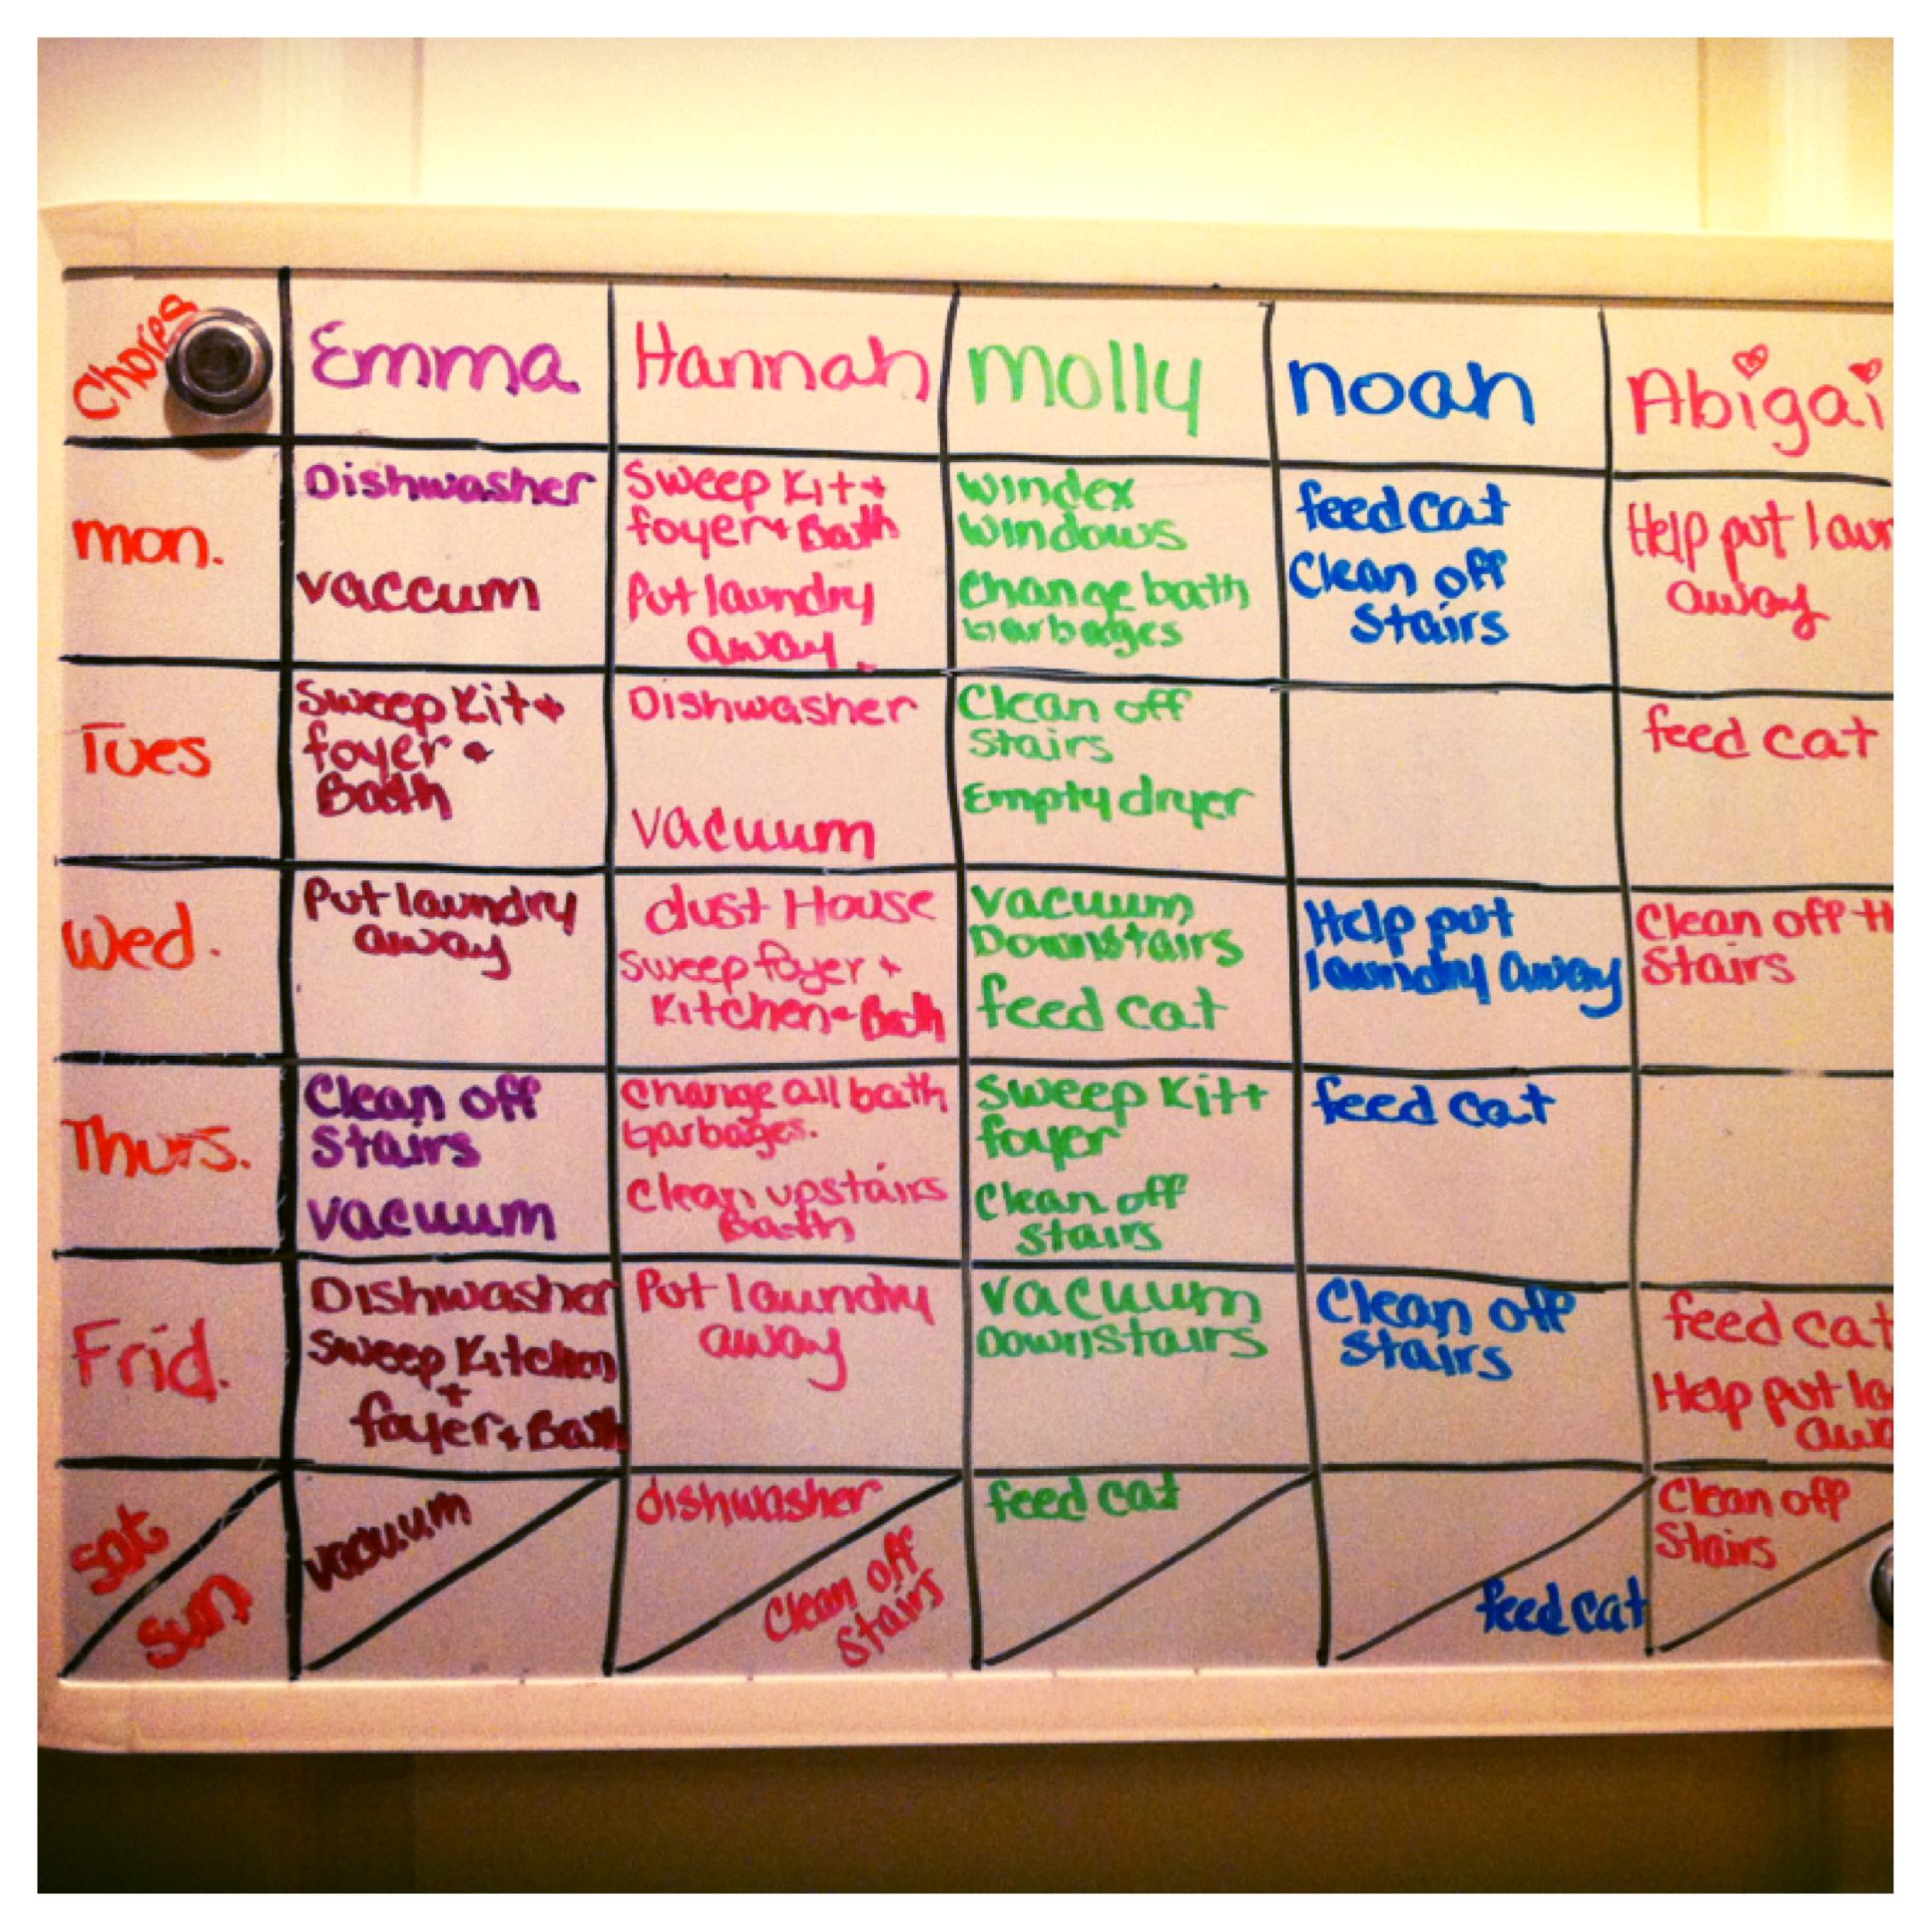 Chores
Emma
Hannah
Molly
noah
Abigai
mon.
Dishwasher
vaccum
Sweep Kit +
foyer + Bath
Put laundry
away.
Windex
Windows
Change bath
Garbages
feed cat
Clean off
Stairs
Help put
away
Tues
Sweep Kit +
foyer +
Bath
Dishwasher
vacuum
Clean off
Stairs
Empty dryer
feed cat
Wed.
Put laundry
away
dust House
Sweep foyer +
Kitchen + Bath
Vacuum
Downstairs
feed cat
Help put
laundry away
Clean off
Stairs
Thurs.
Clean off
Stairs
Vacuum
Change all bath
Garbages.
Clean upstairs
Bath
Sweep Kit +
foyer
Clean off
Stairs
feed cat
Frid.
Dishwasher
Sweep Kitchen
+
foyer + Bath
Put laundry
away
Vacuum
Downstairs
Clean off
Stairs
feed cat
Help put
Sat
Sun
vacuum
dishwasher
Clean off
Stairs
feed cat
feed cat
Clean off
Stairs